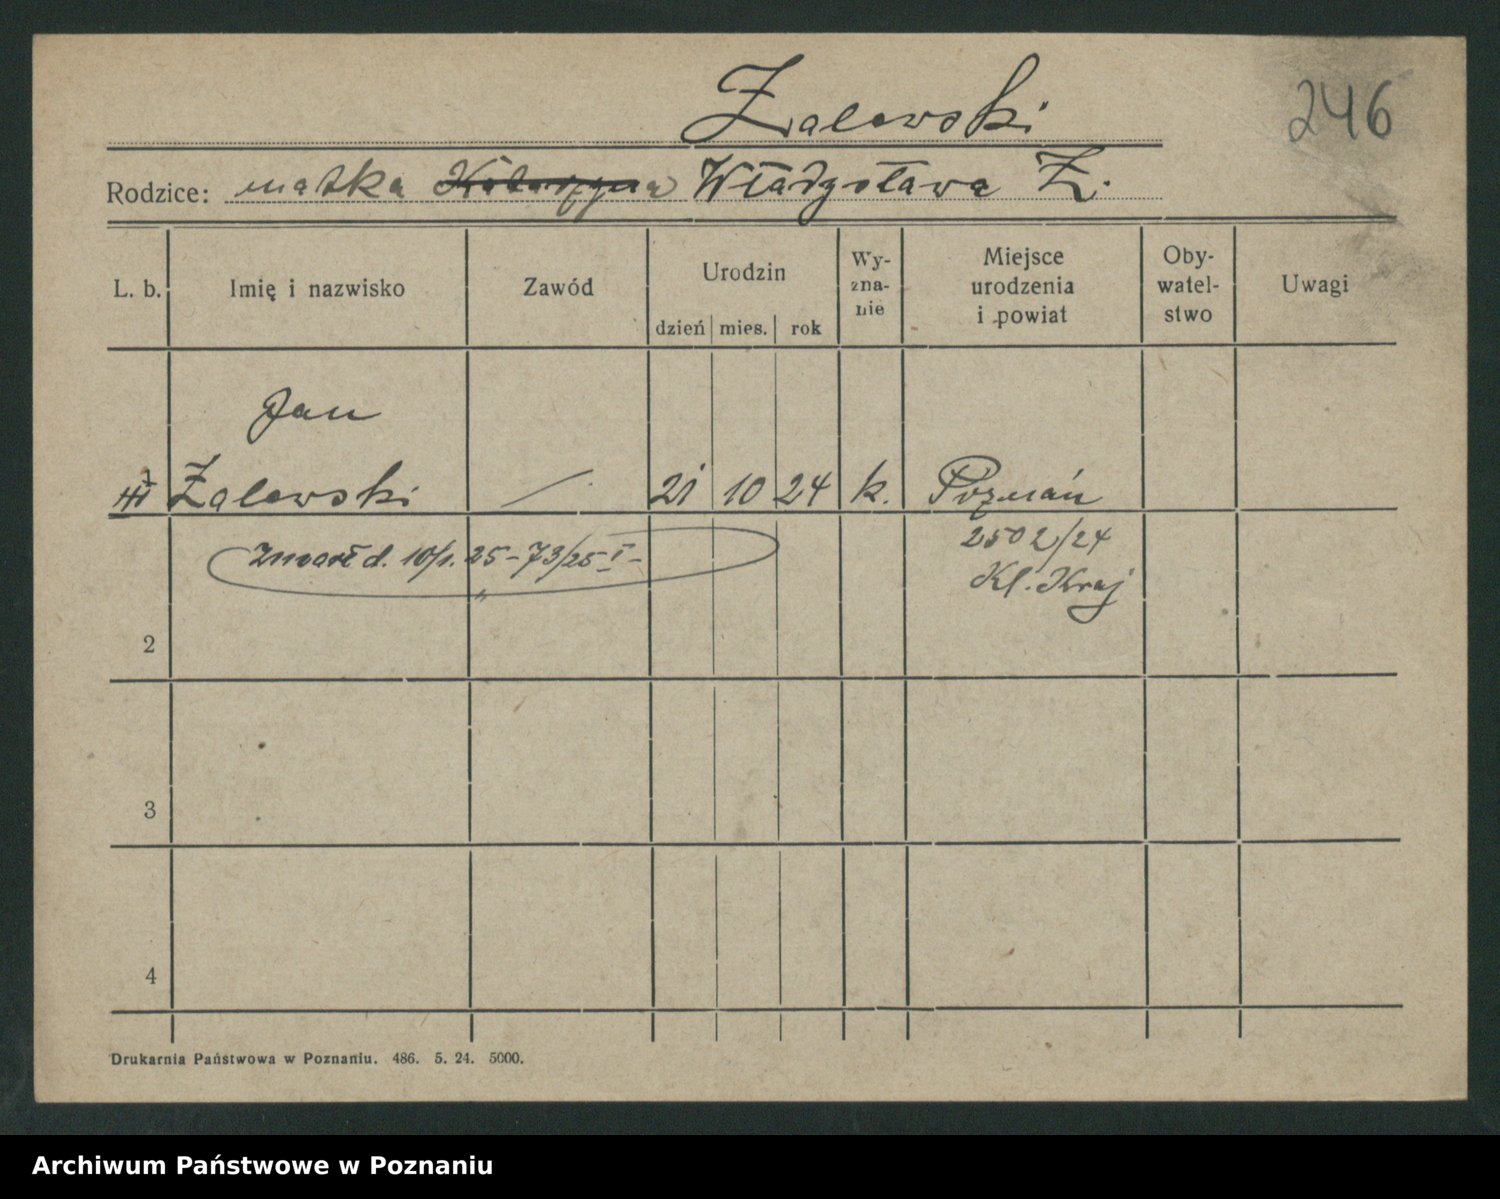 Zalewski
246
Rodzice: matka Katarzyna Władysława Z.
L. b. Imię i nazwisko Zawód Urodzin dzień mies. rok Wy-zna-nie Miejsce urodzenia i powiat Oby-watel-stwo Uwagi
Jan
1 Zalewski / 21 10 24 k. Poznań
Zmarł d. 10/1. 25 – 73/25 I – 2502/24
Kl. Kraj
2
3
4
Drukarnia Państwowa w Poznaniu. 486. 5. 24. 5000.
Archiwum Państwowe w Poznaniu